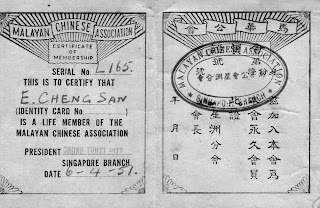 MALAYAN CHINESE ASSOCIATION
CERTIFICATE
OF
MEMBERSHIP
SERIAL No. L165.
THIS IS TO CERTIFY THAT
E. CHENG SAN
(IDENTITY CARD No. )
IS A LIFE MEMBER OF THE
MALAYAN CHINESE ASSOCIATION
PRESIDENT
SINGAPORE BRANCH
DATE 6-4-51.
馬華公會
MALAYAN CHINESE ASSOCIATION
SINGAPORE BRANCH
加入本會為
會永久會員
此證
星洲分會
會長
年月日